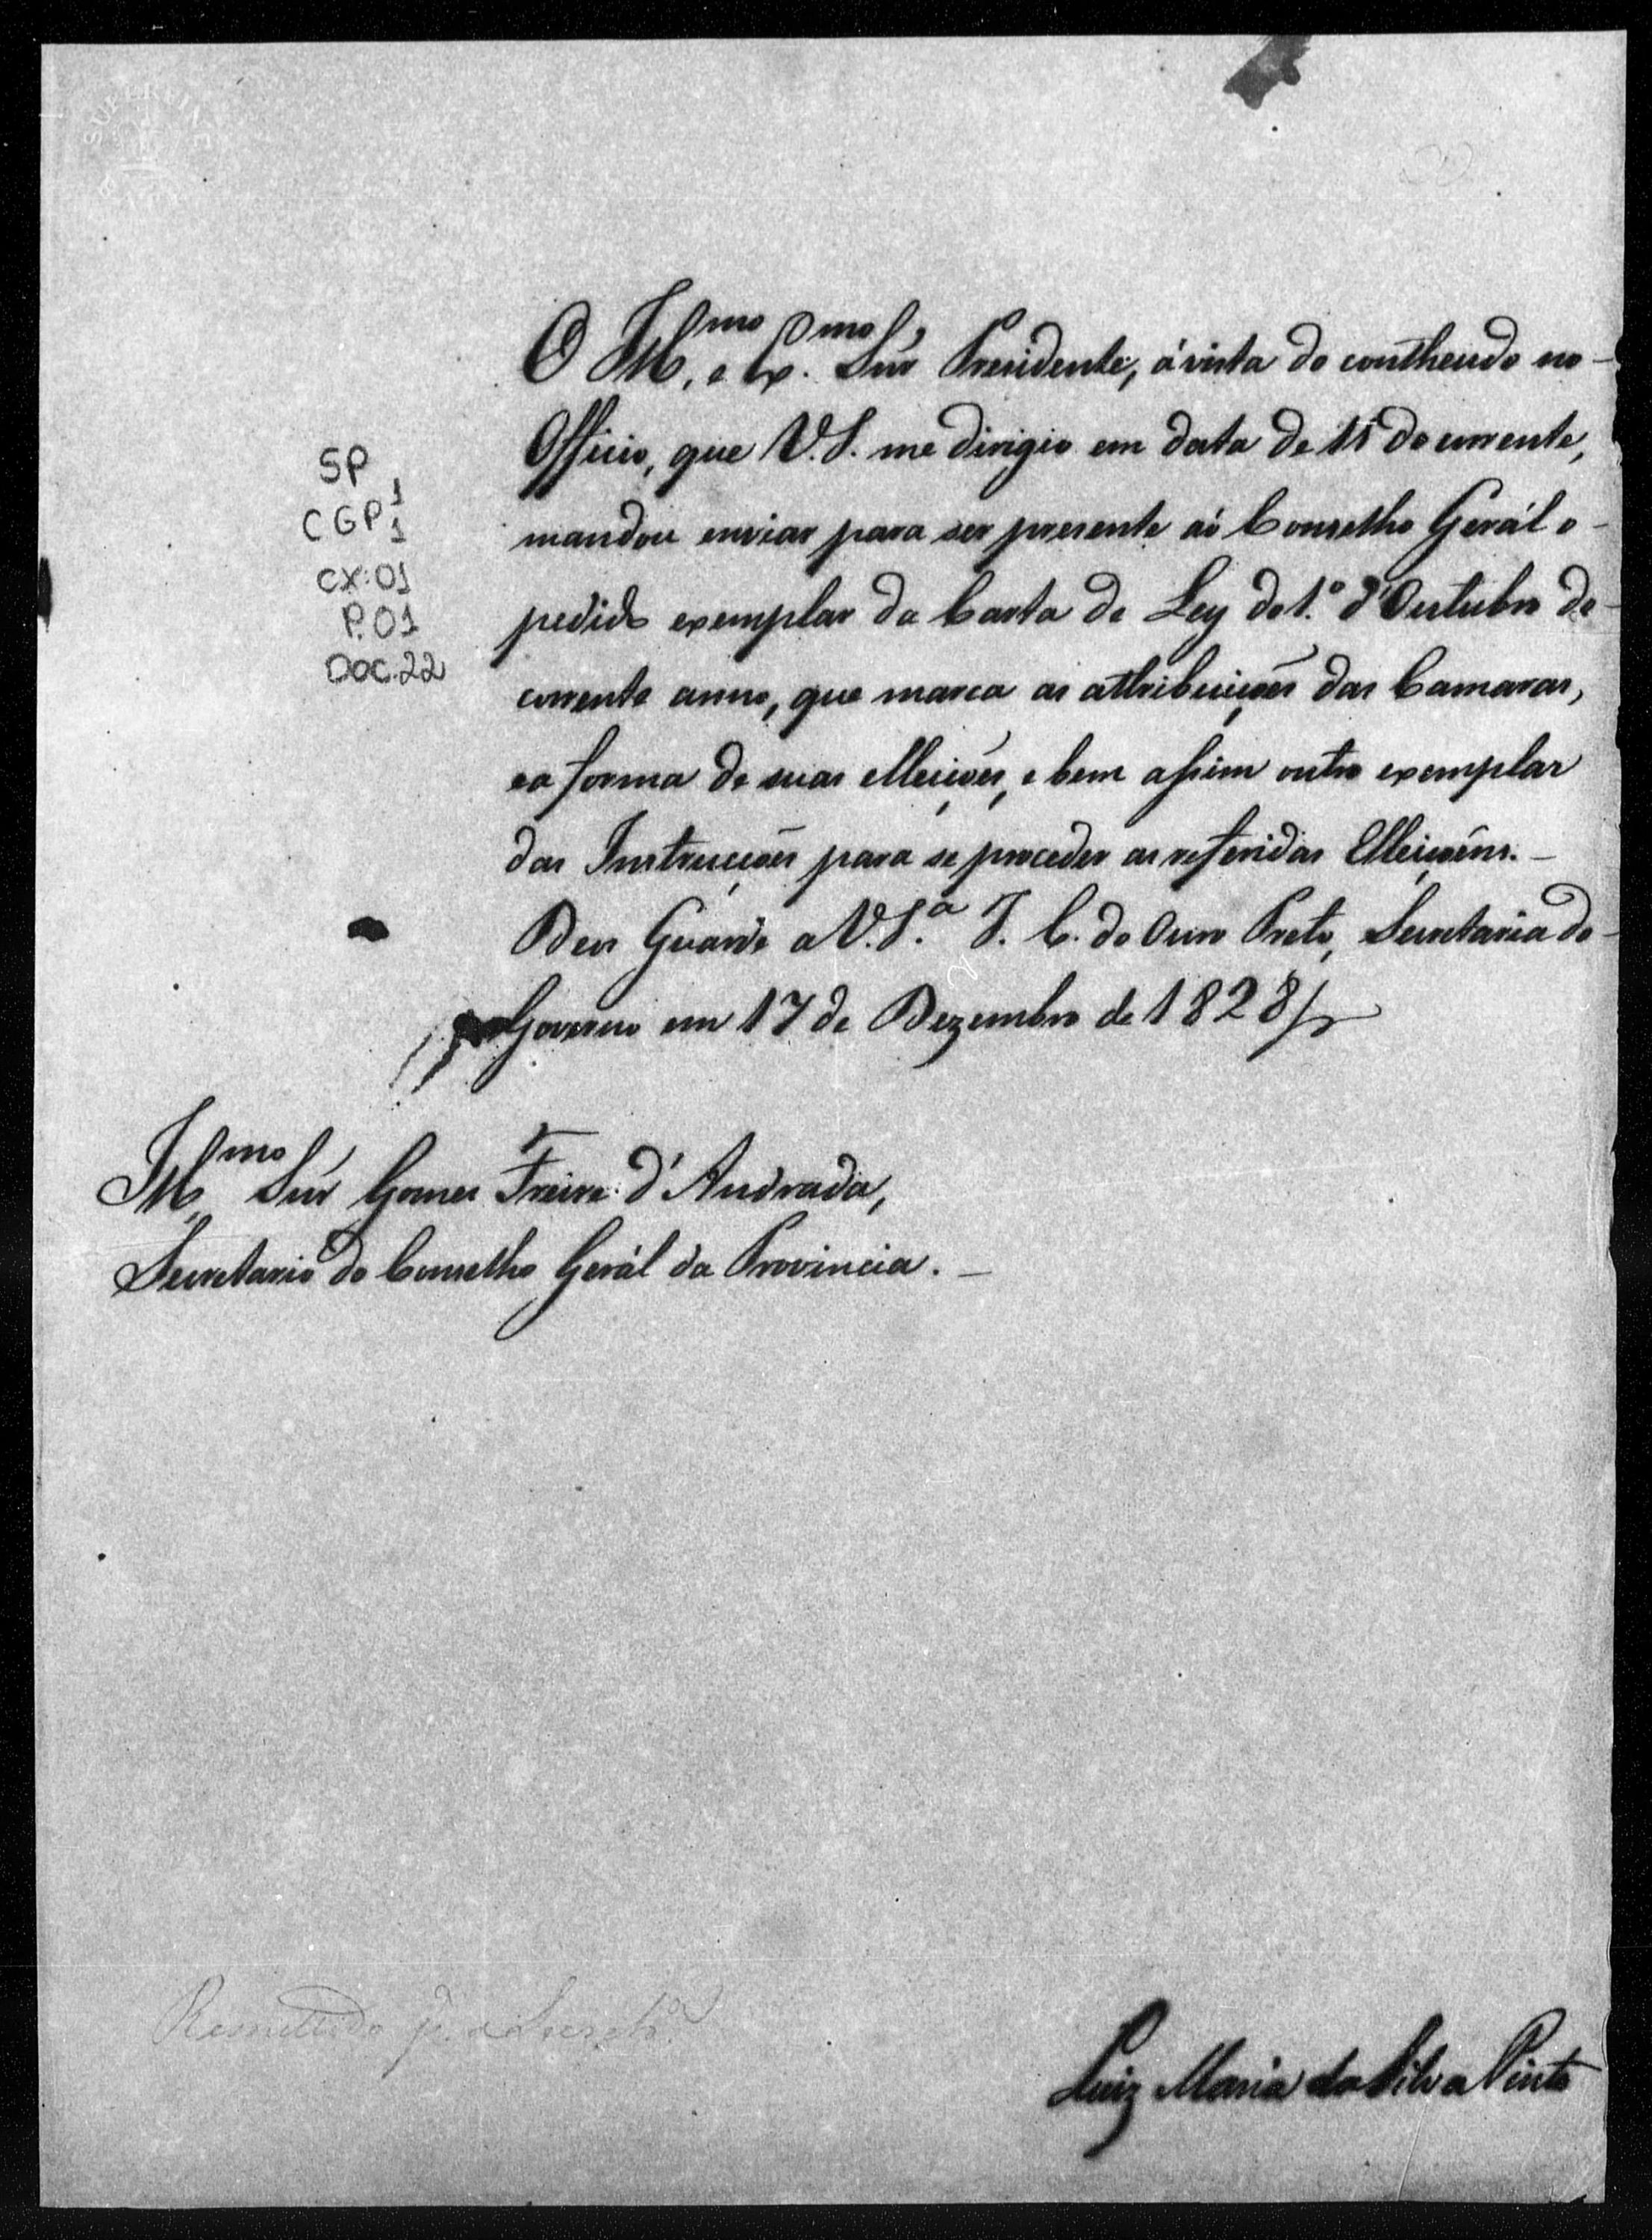 O Ill.mo, e Ex.mo Snr Presidente, á vista do contheudo no
Officio, que V.S. me dirigio em data de 15 do corrente,
mandou enviar para ser presente aó Conselho Gerál o
pedido exemplar da Carta de Ley do 1.º d'Outubro do
corrente anno, que marca as attribuições das Camaras,
e a forma de suas elleições, e bem assim outro exemplar
das Instrucções para se proceder as referidas Elleiçoens.
Deos Guarde a V.S.ª I. C. do Ouro Preto, Secretaria do
Governo em 17 de Dezembro de 1828
Ill.mo Snr Gomes Freire d'Andrada,
Secretario do Conselho Gerál da Provincia.
SP
CGP 1
1
CX: 01
P. 01
DOC. 22
Remettido p.ª a Secret.ª
Luiz Maria da Silva Pinto